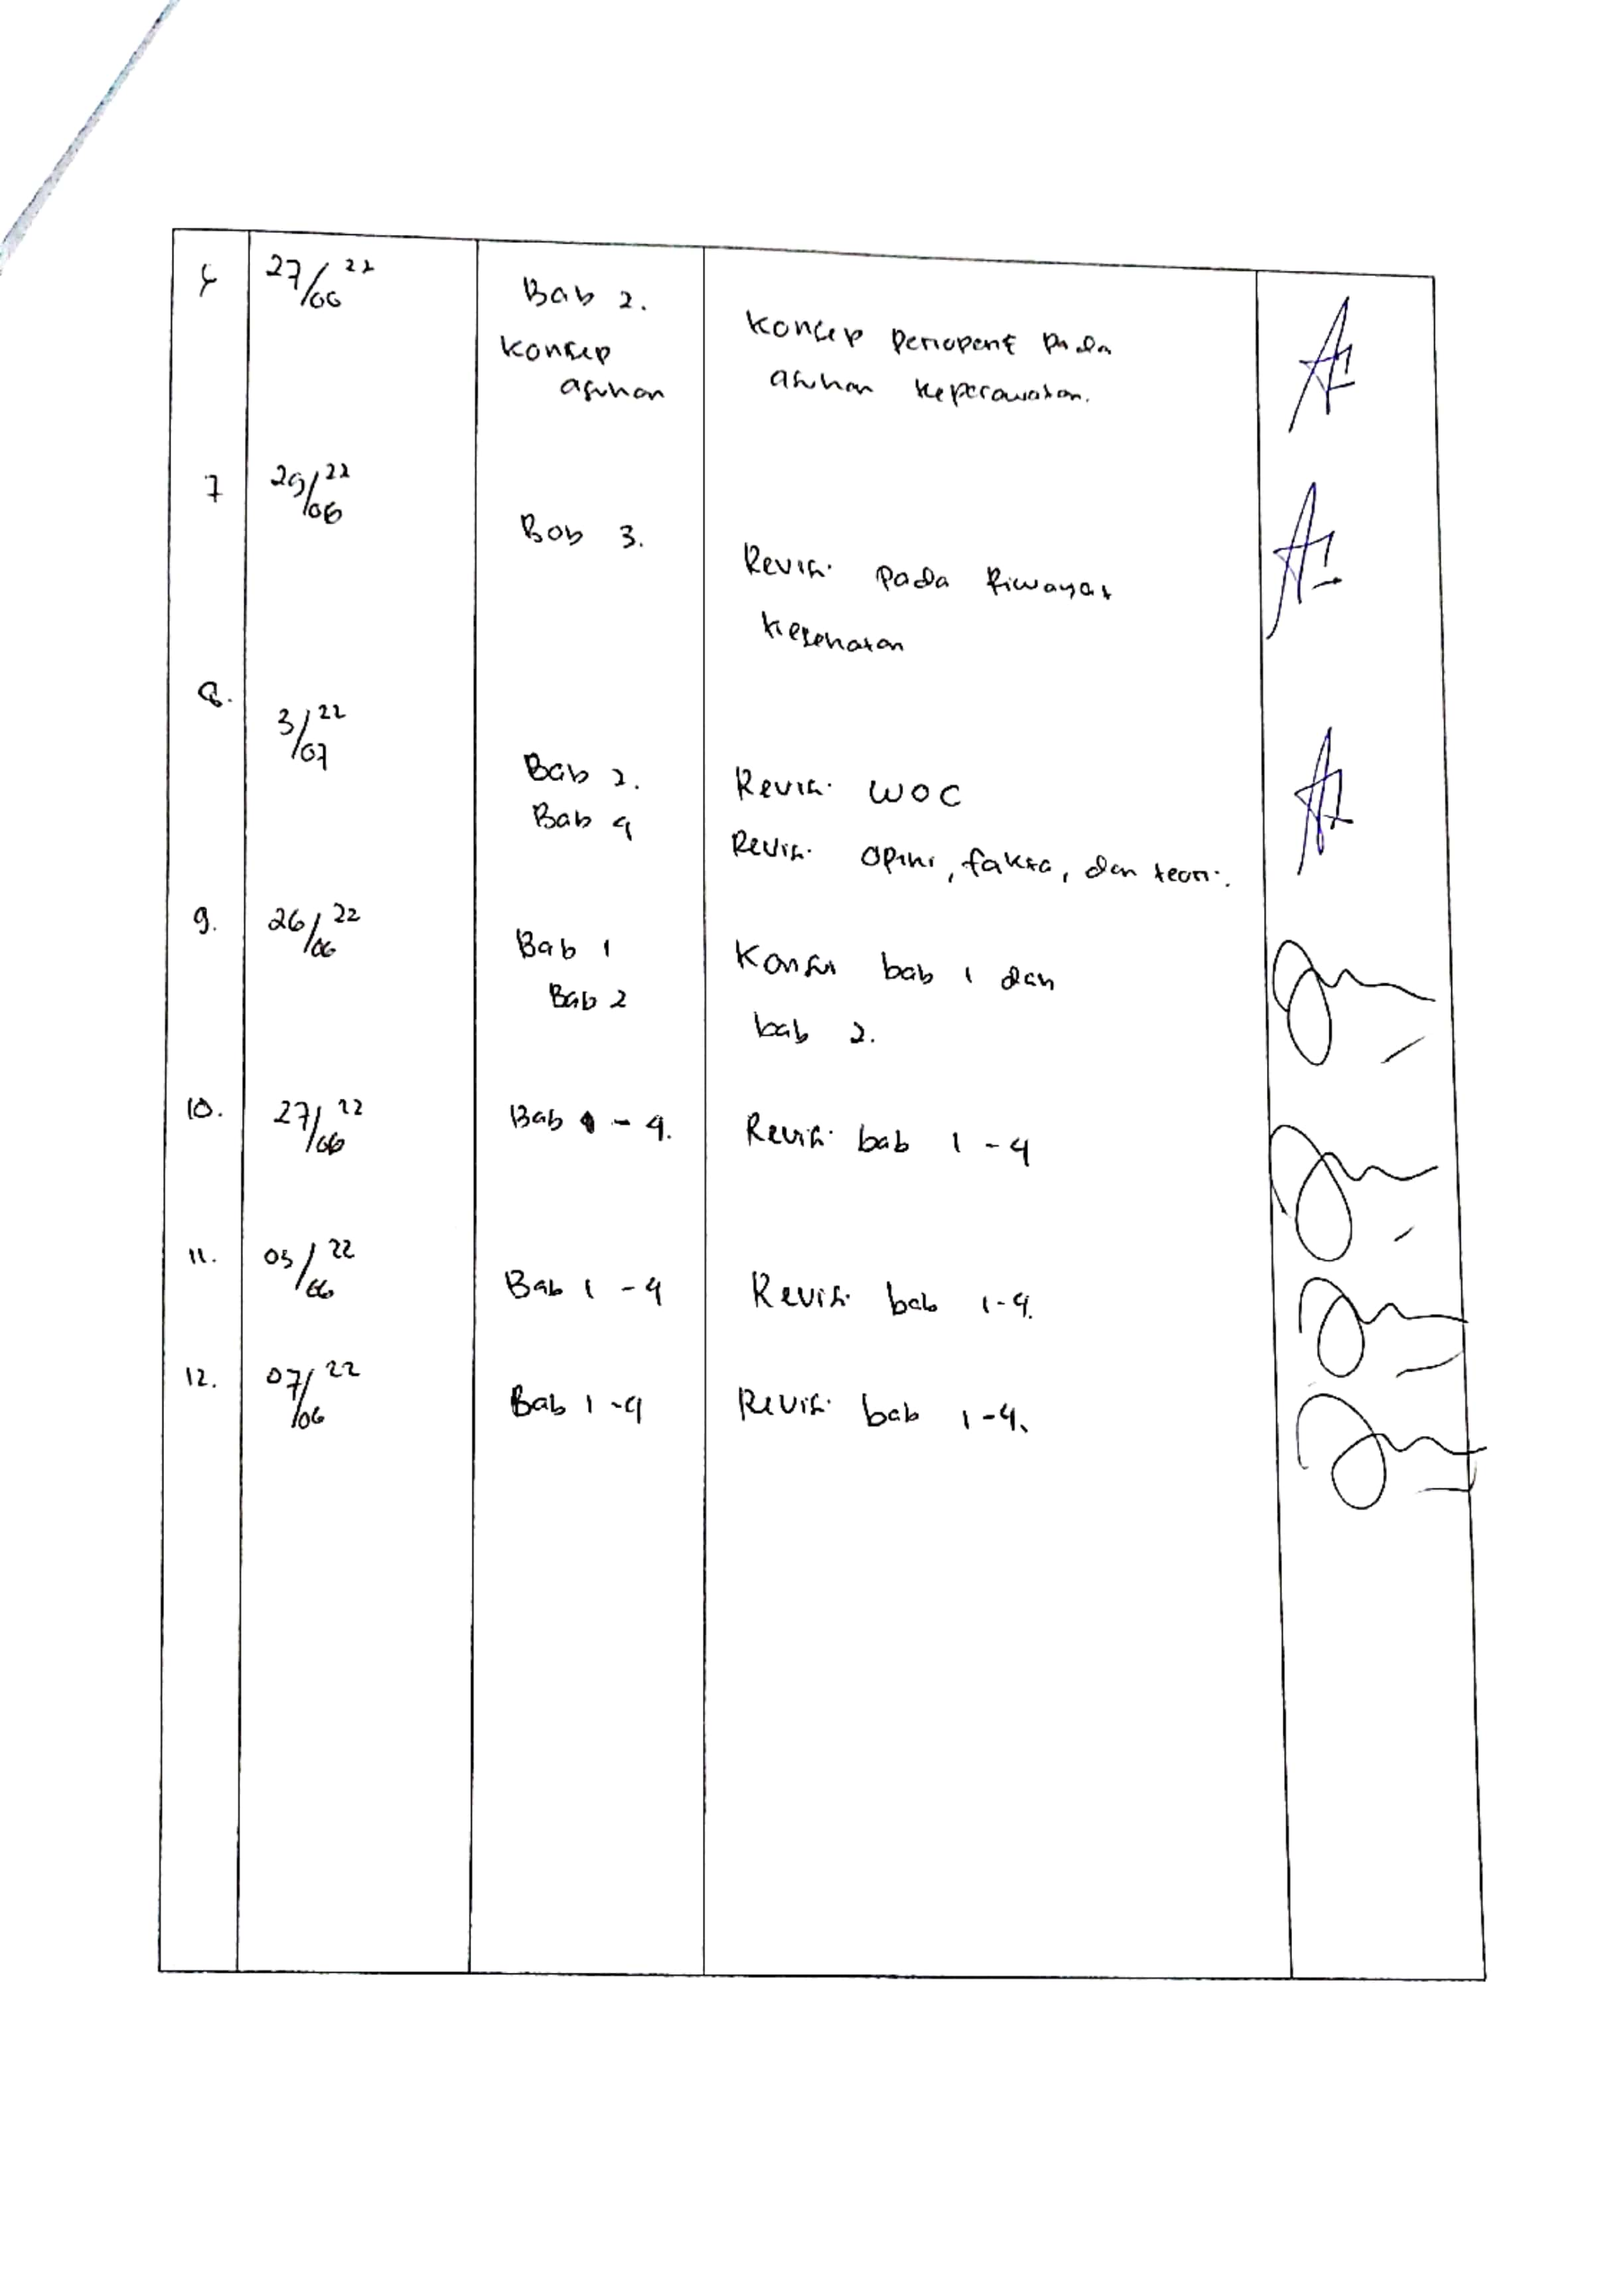 27/06 22
Bab 2.
Konsep
asuhan
Konsep pada
asuhan keperawatan.
7
29/06 22
Bab 3.
Revisi pada Riwayat
kesehatan
8.
3/07 22
Bab 2.
Bab 4
Revisi WOC
Revisi opini, fakta, dan teori.
9.
26/06 22
Bab 1
Bab 2
Konsul bab 1 dan
bab 2.
10.
27/06 22
Bab 1 - 4.
Revisi bab 1 - 4
11.
05/06 22
Bab 1 - 4
Revisi bab 1-4.
12.
07/06 22
Bab 1-4
Revisi bab 1-4.